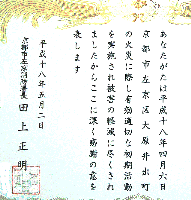 あなたがたは平成十八年四月六日
京都市左京区大原井出町
の火災に際し有効適切な初期活動
を実施され被害の軽減に尽くされ
ましたからここに深く感謝の意を
表します
平成十八年 月二日
京都市左京消防署長
田上正明